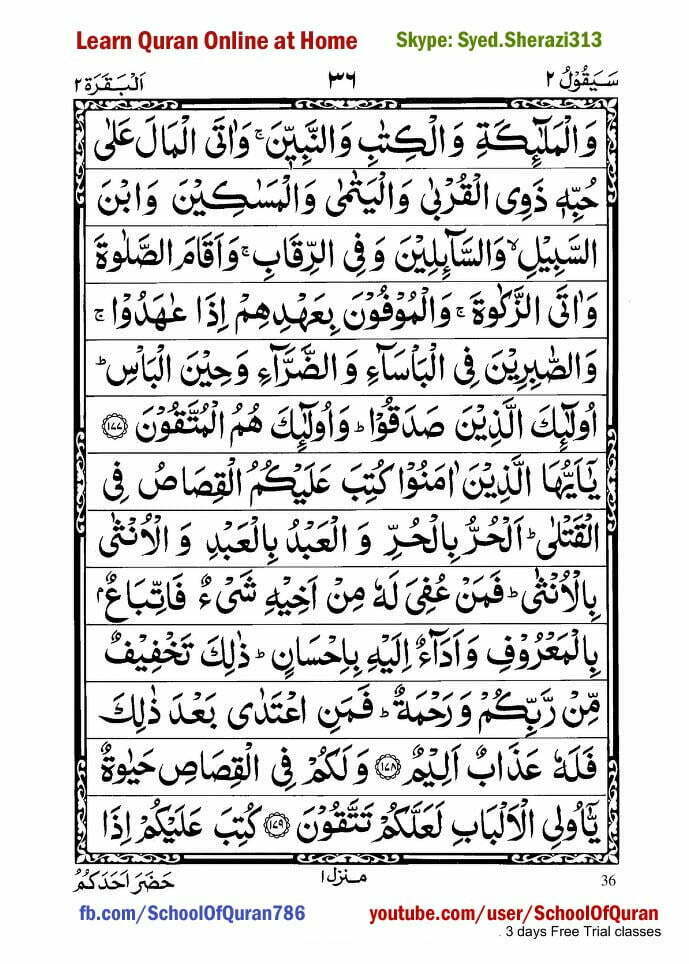 Learn Quran Online at Home Skype: Syed.Sherazi313
سَيَقُوْلُ ٢ ٣٦ اَلْبَقَرَة ٢
وَالْمَلٰٓئِكَةِ وَالْكِتٰبِ وَالنَّبِيّٖنَ ۚ وَاٰتَى الْمَالَ عَلٰى
حُبِّهٖ ذَوِى الْقُرْبٰى وَالْيَتٰمٰى وَالْمَسٰكِيْنَ وَابْنَ
السَّبِيْلِ ۙ وَالسَّآئِلِيْنَ وَفِى الرِّقَابِ ۚ وَاَقَامَ الصَّلٰوةَ
وَاٰتَى الزَّكٰوةَ ۚ وَالْمُوْفُوْنَ بِعَهْدِهِمْ اِذَا عٰهَدُوْا ۚ
وَالصّٰبِرِيْنَ فِى الْبَاْسَآءِ وَالضَّرَّآءِ وَحِيْنَ الْبَاْسِ ؕ
اُولٰٓئِكَ الَّذِيْنَ صَدَقُوْا ؕ وَاُولٰٓئِكَ هُمُ الْمُتَّقُوْنَ ﴿١٧٧﴾
يٰٓاَيُّهَا الَّذِيْنَ اٰمَنُوْا كُتِبَ عَلَيْكُمُ الْقِصَاصُ فِى
الْقَتْلٰى ؕ اَلْحُرُّ بِالْحُرِّ وَ الْعَبْدُ بِالْعَبْدِ وَ الْاُنْثٰى
بِالْاُنْثٰى ؕ فَمَنْ عُفِىَ لَهٗ مِنْ اَخِيْهِ شَىْءٌ فَاتِّبَاعٌۢ
بِالْمَعْرُوْفِ وَاَدَآءٌ اِلَيْهِ بِاِحْسَانٍ ؕ ذٰلِكَ تَخْفِيْفٌ
مِّنْ رَّبِّكُمْ وَرَحْمَةٌ ؕ فَمَنِ اعْتَدٰى بَعْدَ ذٰلِكَ
فَلَهٗ عَذَابٌ اَلِيْمٌ ﴿١٧٨﴾ وَلَكُمْ فِى الْقِصَاصِ حَيٰوةٌ
يّٰٓاُولِى الْاَلْبَابِ لَعَلَّكُمْ تَتَّقُوْنَ ﴿١٧٩﴾ كُتِبَ عَلَيْكُمْ اِذَا
حَضَرَ اَحَدَكُمُ منزل ١ 36
fb.com/SchoolOfQuran786 youtube.com/user/SchoolOfQuran
. 3 days Free Trial classes